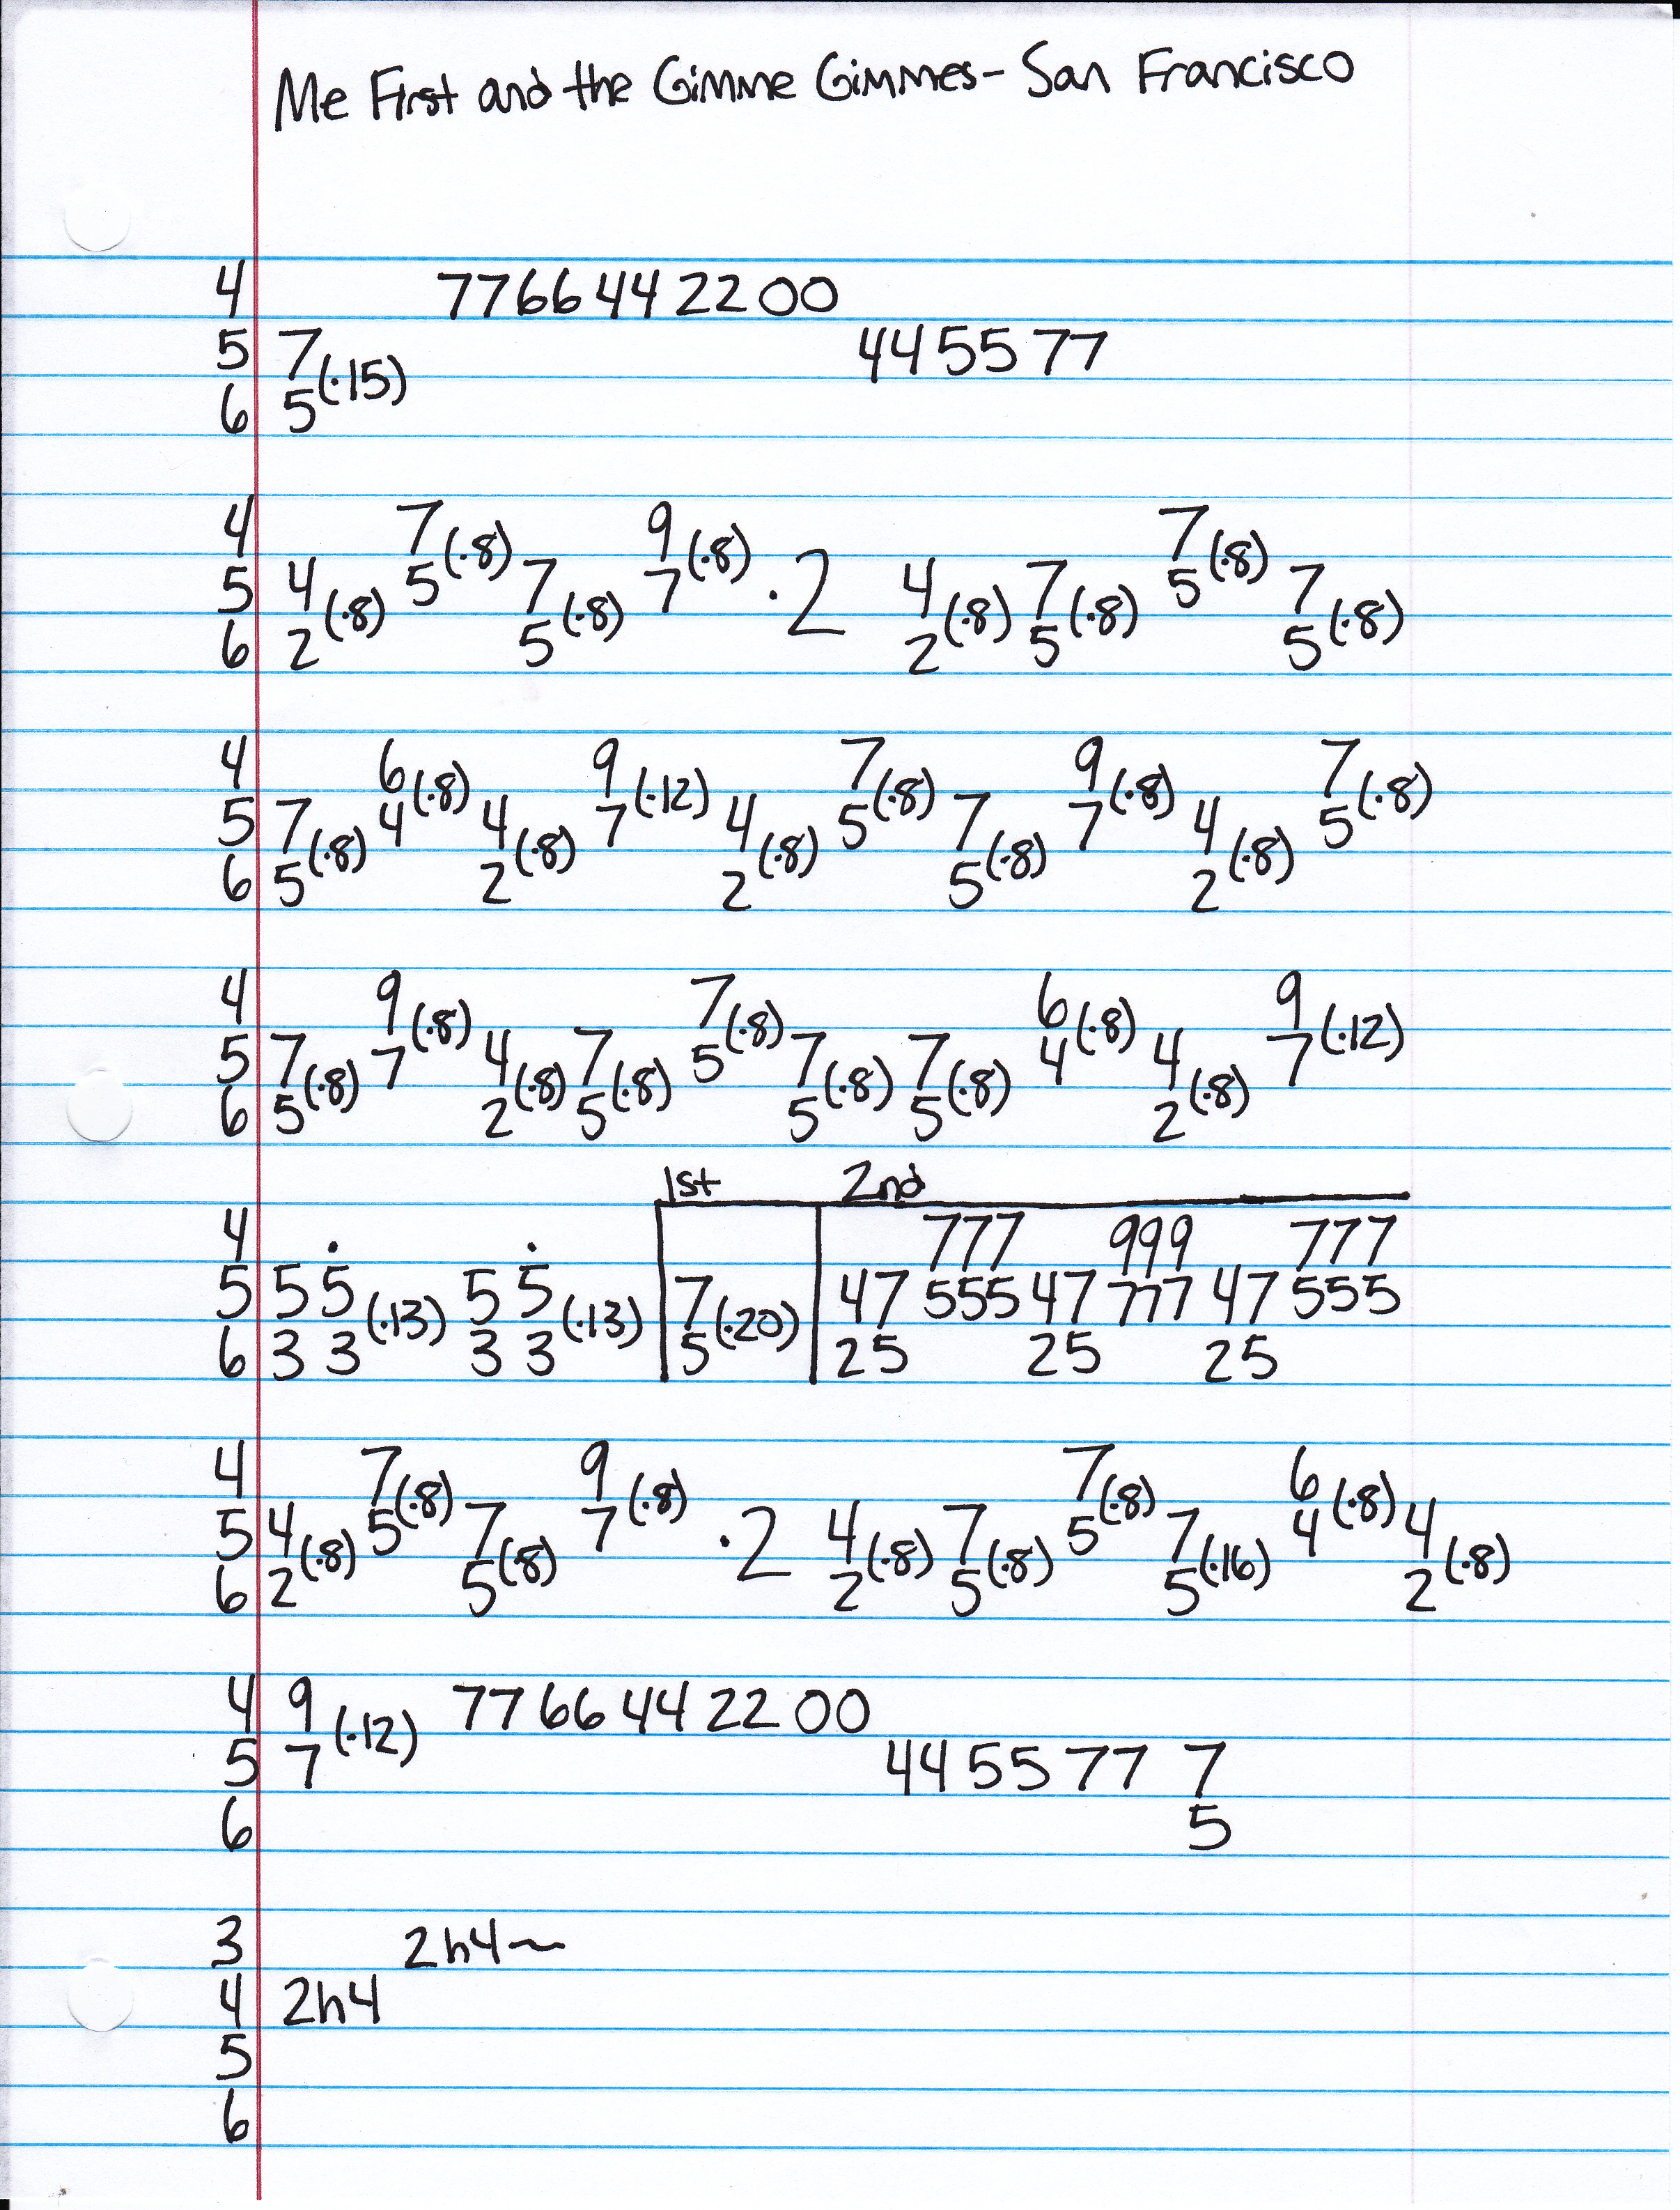 Me First and the Gimme Gimmes - San Francisco
4 7766442200
5 7 (·15) 445577
6 5
4 7 (·8) 9 (·8) 7 (·8)
5 4 (·8) 5 7 (·8) 7 ·2 4 (·8) 7 (·8) 5 7 (·8)
6 2 5 2 5 5
4 6 (·8) 9 (·12) 7 (·8) 9 (·8) 7 (·8)
5 7 (·8) 4 4 (·8) 7 4 (·8) 5 7 (·8) 7 4 (·8) 5
6 5 2 2 5 2
4 9 (·8) 7 (·8) 6 (·8) 9 (·12)
5 7 (·8) 7 4 (·8) 7 (·8) 5 7 (·8) 7 (·8) 4 4 (·8) 7
6 5 2 5 5 5 2
1st 2nd
4 · · 777 999 777
5 5 5 (·13) 5 5 (·13) 7 (·20) 47 555 47 777 47 555
6 3 3 3 3 5 25 25 25
4 7 (·8) 9 (·8) 7 (·8) 6 (·8)
5 4 (·8) 5 7 (·8) 7 ·2 4 (·8) 7 (·8) 5 7 (·16) 4 4 (·8)
6 2 5 2 5 5 2
4 9 (·12) 7766442200
5 7 445577 7
6 5
3 2h4~
4 2h4
5
6